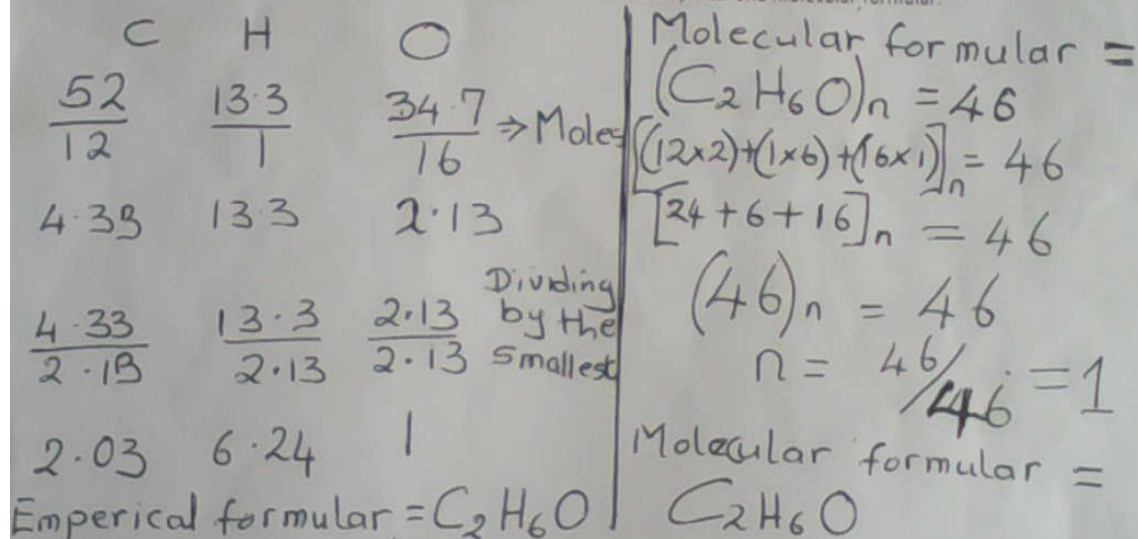 molecular formular.
C H O
52/12 13.3/1 34.7/16 ⇒ Moles
4.33 13.3 2.13
4.33/2.13 13.3/2.13 2.13/2.13 Dividing by the smallest
2.03 6.24 1
Emperical formular = C₂H₆O
Molecular formular =
(C₂H₆O)n = 46
[(12×2)+(1×6)+(16×1)]n = 46
[24+6+16]n = 46
(46)n = 46
n = 46/46 = 1
Molecular formular =
C₂H₆O